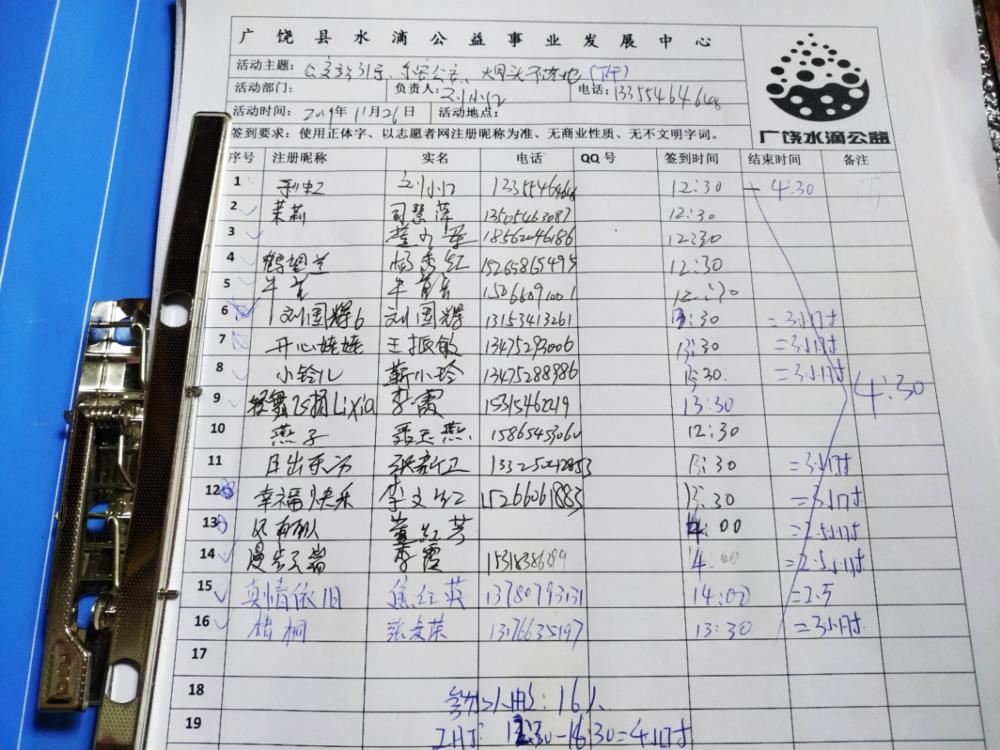 广饶县水滴公益事业发展中心
活动主题: (下午)
活动部门: 负责人: 刘小口 电话: 13355464648
活动时间: 2019年11月26日 活动地点:
签到要求: 使用正体字、以志愿者网注册昵称为准、无商业性质、无不文明字词。
广饶水滴公益
序号 注册昵称 实名 电话 QQ号 签到时间 结束时间 备注
1 刘小口 12:30 4:30
2 茉莉 司慧萍 13505463087 12:30
3 18562046186 12:30
4 鹤望兰 杨秀红 15265815495 12:30
5 15066091001
6 刘国辉6 刘国辉 13153413261 13:30 =3小时
7 开心娃娃 王振敏 13475293006 13:30 =3小时
8 小铃儿 靳小玲 13475288986 13:30 =3小时
4:30
9 轻舞飞扬Lixia 李霞 13:30
10 燕子 张玉燕 12:30
11 日出东方 张新卫 13:30 =3小时
12 幸福快乐 李文红 15266061883 13:30 =3小时
13 董红芳 4:00 =2.5小时
14 李霞 4:00 =2.5小时
15 真情依旧 焦红英 13780793131 14:00 =2.5
16 梧桐 张爱荣 13176635197 13:30 =3小时
17
18 参加人数: 16人
19 工时: 12:30-16:30=4小时